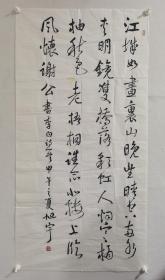 江城如畫裏山晚望晴空兩水
夾明鏡雙橋落彩虹人烟寒橘
柚秋色老梧桐誰念北樓上臨
風懷謝公書李白甲午之夏旭宇